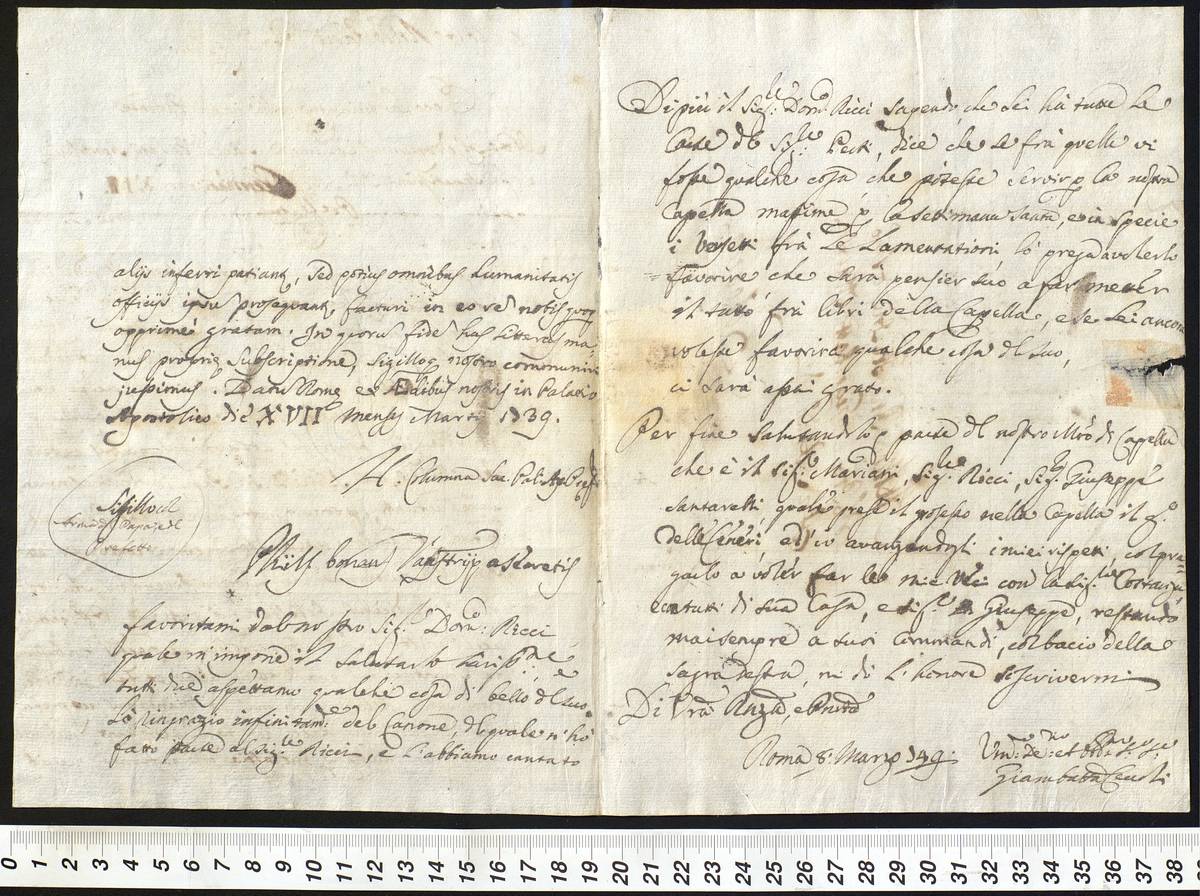 alijs inferri patiantr, sed potius omnibus humanitatis
officijs ipsū prosequantr, facturi in eo rem nobis quoq
apprime gratam. In quorū fidē has litteras ma-
nus proprię subscriptione, sigilloq nostro communiri
jussimus. Datū Romę ex Ędibus nostris in Palatio
Apostolico diē XVII mensis Martij 1739.
Columna Sac. Pal. Ap. Pręf
Sigillo del
Prefetto
favoritami dal nostro Sig.r Dom.co: Ricci
quale m'impone il salutarlo
tutti due aspettamo qualche cosa di bello del suo.
Lo ringrazio infinitam.e del Canone, del quale n'hò
fatto parte al Sig.re Ricci, e l'abbiamo cantato
Di più il Sig.re Dom.co Ricci sapendo, che Lei hà tutte le
Carte del Sig.re, dice che se frà quelle vi
fosse qualche cosa che potesse servir p la nostra
Capella massime p la Settimana Santa, e in specie
i Versetti frà le Lamentationi, lo prega averlo
favorire che sarà pensier suo a far metter
il tutto frà libri della Capella, e se Lei ancora
volesse favorirci qualche cosa del suo,
ci sarà assai grato.
Per fine salutandolo p parte del nostro Mro di Capella
che è il Sig.r Mariani, Sig.re Ricci, Sig.r Giuseppe
Santarelli quale prese il possesso nella Capella il g.o
delle Ceneri, ed io avanzandogli i miei rispetti col pre-
garlo a voler far le mie veci con la Sig.ra
e con tutti di sua Casa, e Sig.r Giuseppe, restando
mai sempre a suoi commandi, col bacio della
sagra destra, mi dò l'honore soscrivermi
Di Vrā
Roma 8 Marzo 749.
Giambatta